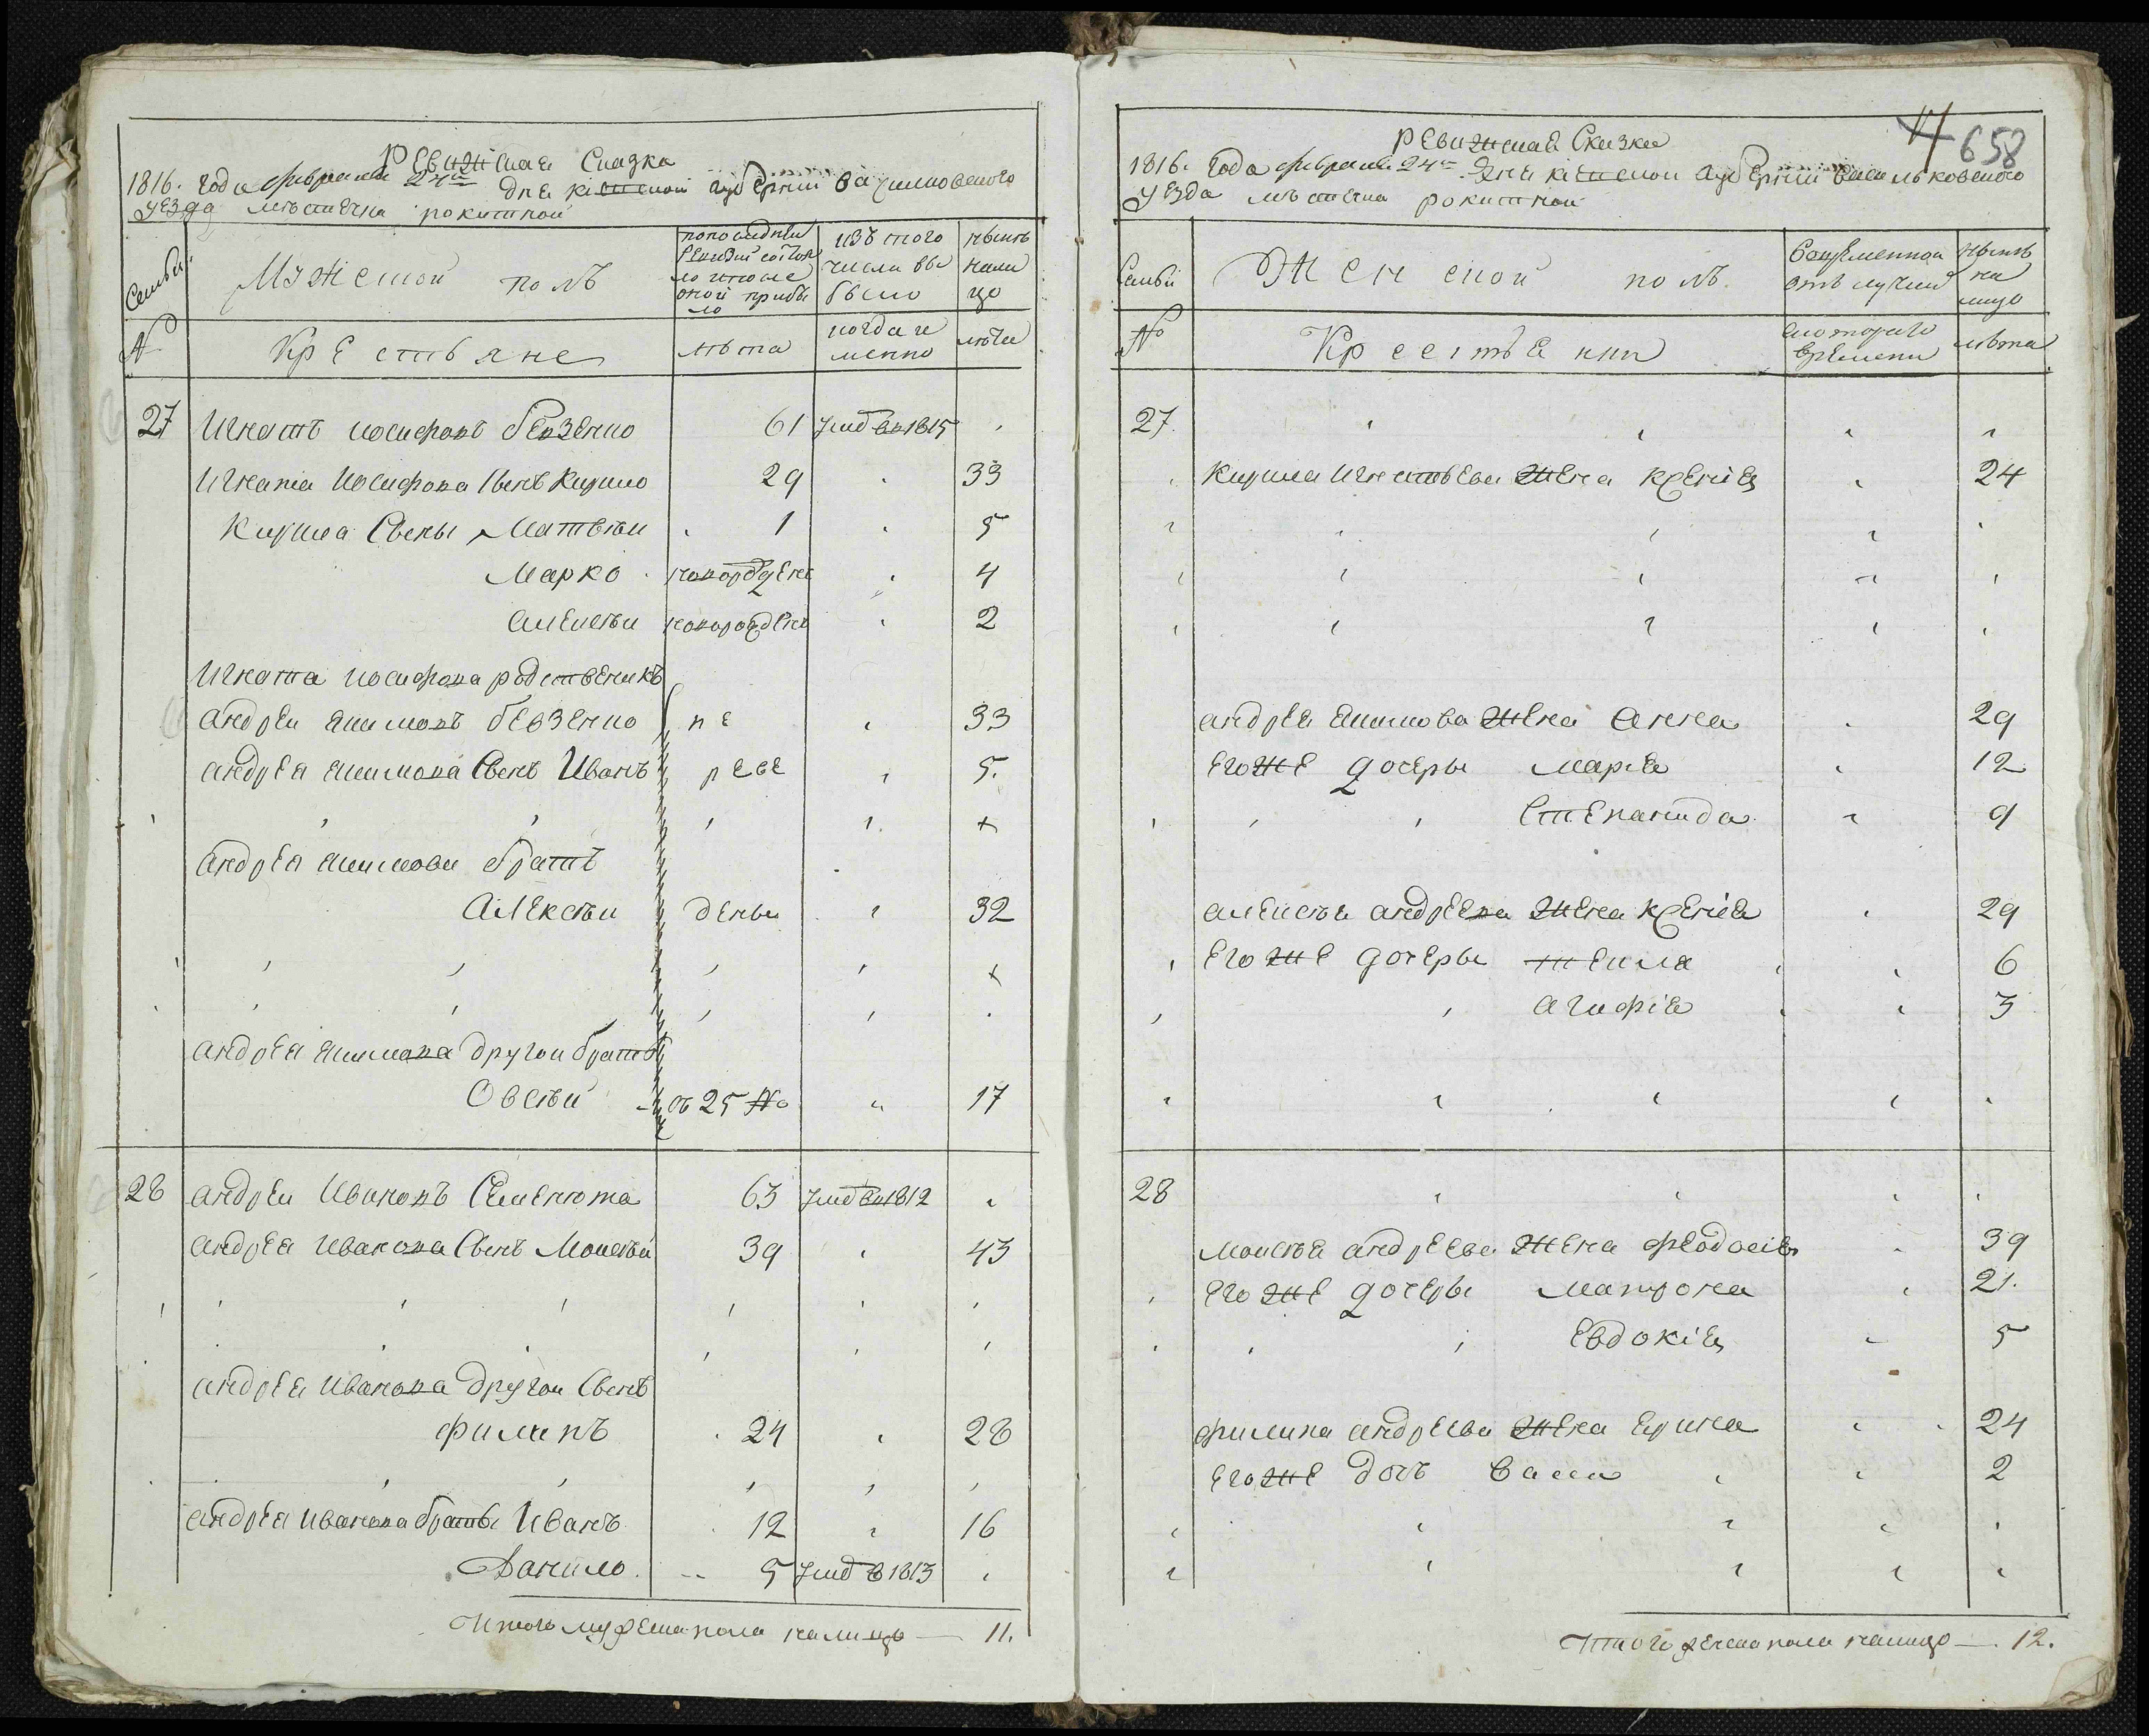 Ревижская Сказка
1816. года февраля 24го дня киевской губернии васильковского
уезда местечка рокитной
Семьи
Мужеской полъ
по последней ревизии состояло и после оной прибыло
изъ того числа выбыло
ныне налицо
№
Крестьяне
лета
когда именно
лета
27 Игнатъ иосифовъ бевзенко 61 умд въ 1815
Игната Иосифова Сынъ Кирило 29 33
Кирила Сыны Матвей 1 5
Марко новорожденъ 4
алексей новорожденъ 2
Игната иосифова родственикъ
андрей якимовъ бевзенко пе 33
андрея якимова Сынъ Иванъ реве 5.
андрея якимова братъ
Алексей дены 32
андрея якимова другой братъ
Овсей съ 25 № 17
28 андрей Ивановъ Семенюта 63 умд въ 1812
андрея Иванова Сынъ Моисей 39 43
андрея Иванова другой Сынъ
филипъ 24 28
андрея Иванова браты Иванъ 12 16
Данило 5 умд в 1813
Итого мужеска пола налицо — 11.
658
Ревижская Сказка
1816. года февраля 24го дня киевской губернии васильковского
уезда местечка рокитной
Семьи
Женской полъ.
Во временной отлучки
ныне на лицо
№
Крестьянки
с которого времени
лета
27
Кирила Игнатьева жена ксенія 24
андрея якимова жена анна 29
его же дочеры марія 12
Степанида 9
алексея андреева жена ксенія 29
его же дочеры текля 6
агафія 3
28
моисея андреева жена феодосія 39
его же дочеры матрона 21.
Евдокія 5
филипа андреева жена ирина 24
его же дочъ васса 2
Итого женска пола налицо — 12.